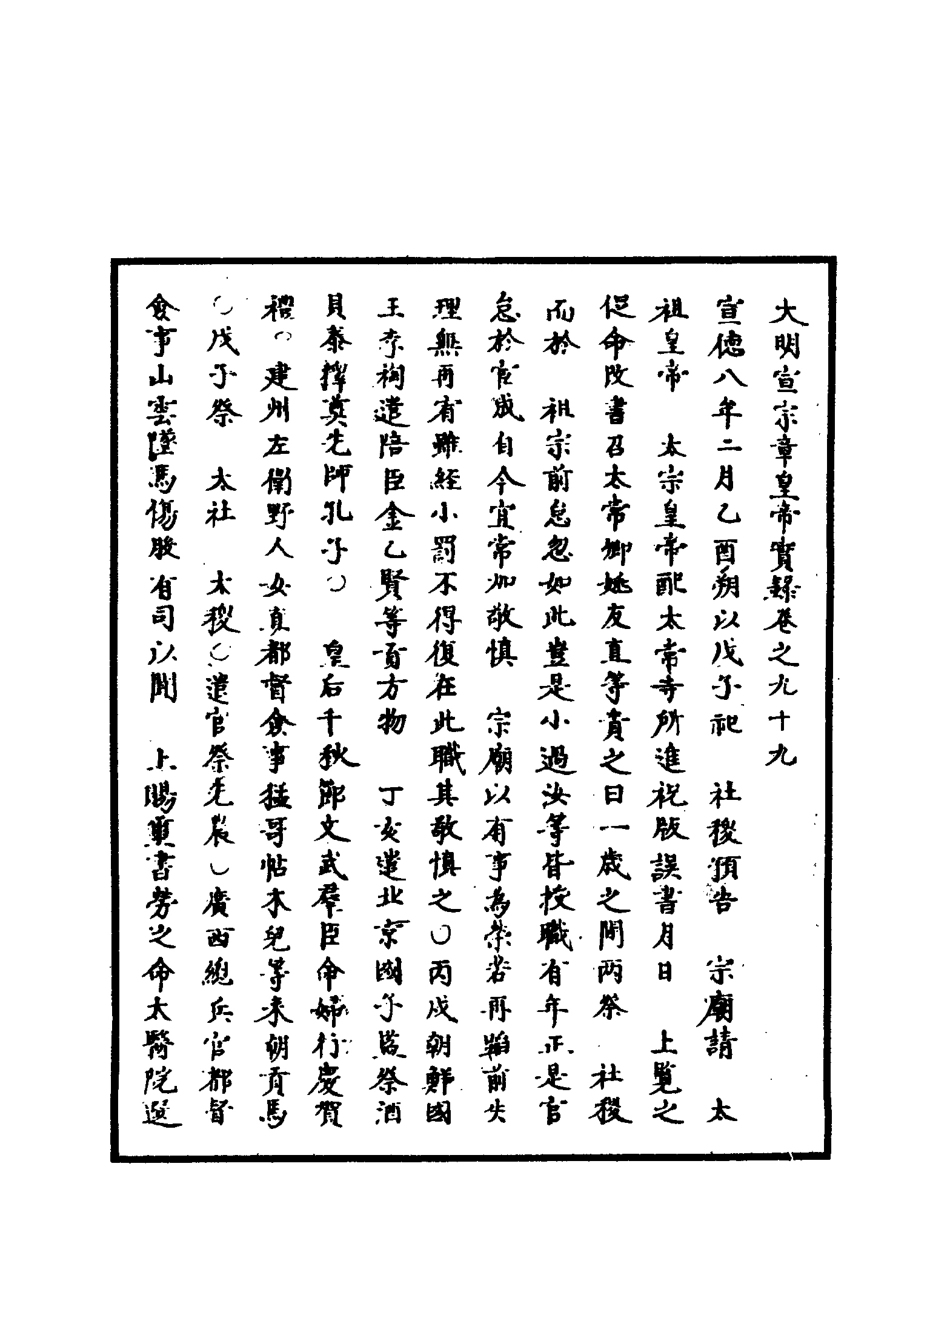 大明宣宗章皇帝實錄卷之九十九
宣德八年二月乙酉朔以戊子祀　社稷預告　宗廟請　太
祖皇帝　太宗皇帝配太常寺所進祝版誤書月日　上覽之
促命改書召太常卿姚友直等責之曰一歲之間兩祭　社稷
而於　祖宗前怠忽如此豈是小過汝等皆授職有年正是官
怠於宦成自今宜常加敬慎　宗廟以有事為榮若再蹈前失
理無再宥雖經小罰不得復在此職其敬慎之○丙戌朝鮮國
王李祹遣陪臣金乙賢等貢方物　丁亥遣北京國子監祭酒
貝泰擇奠先師孔子○　皇后千秋節文武群臣命婦行慶賀
禮○建州左衛野人女直都督僉事猛哥帖木兒等來朝貢馬
○戊子祭　太社　太稷○遣官祭先農○廣西總兵官都督
僉事山雲墜馬傷股有司以聞　上賜璽書勞之命太醫院選